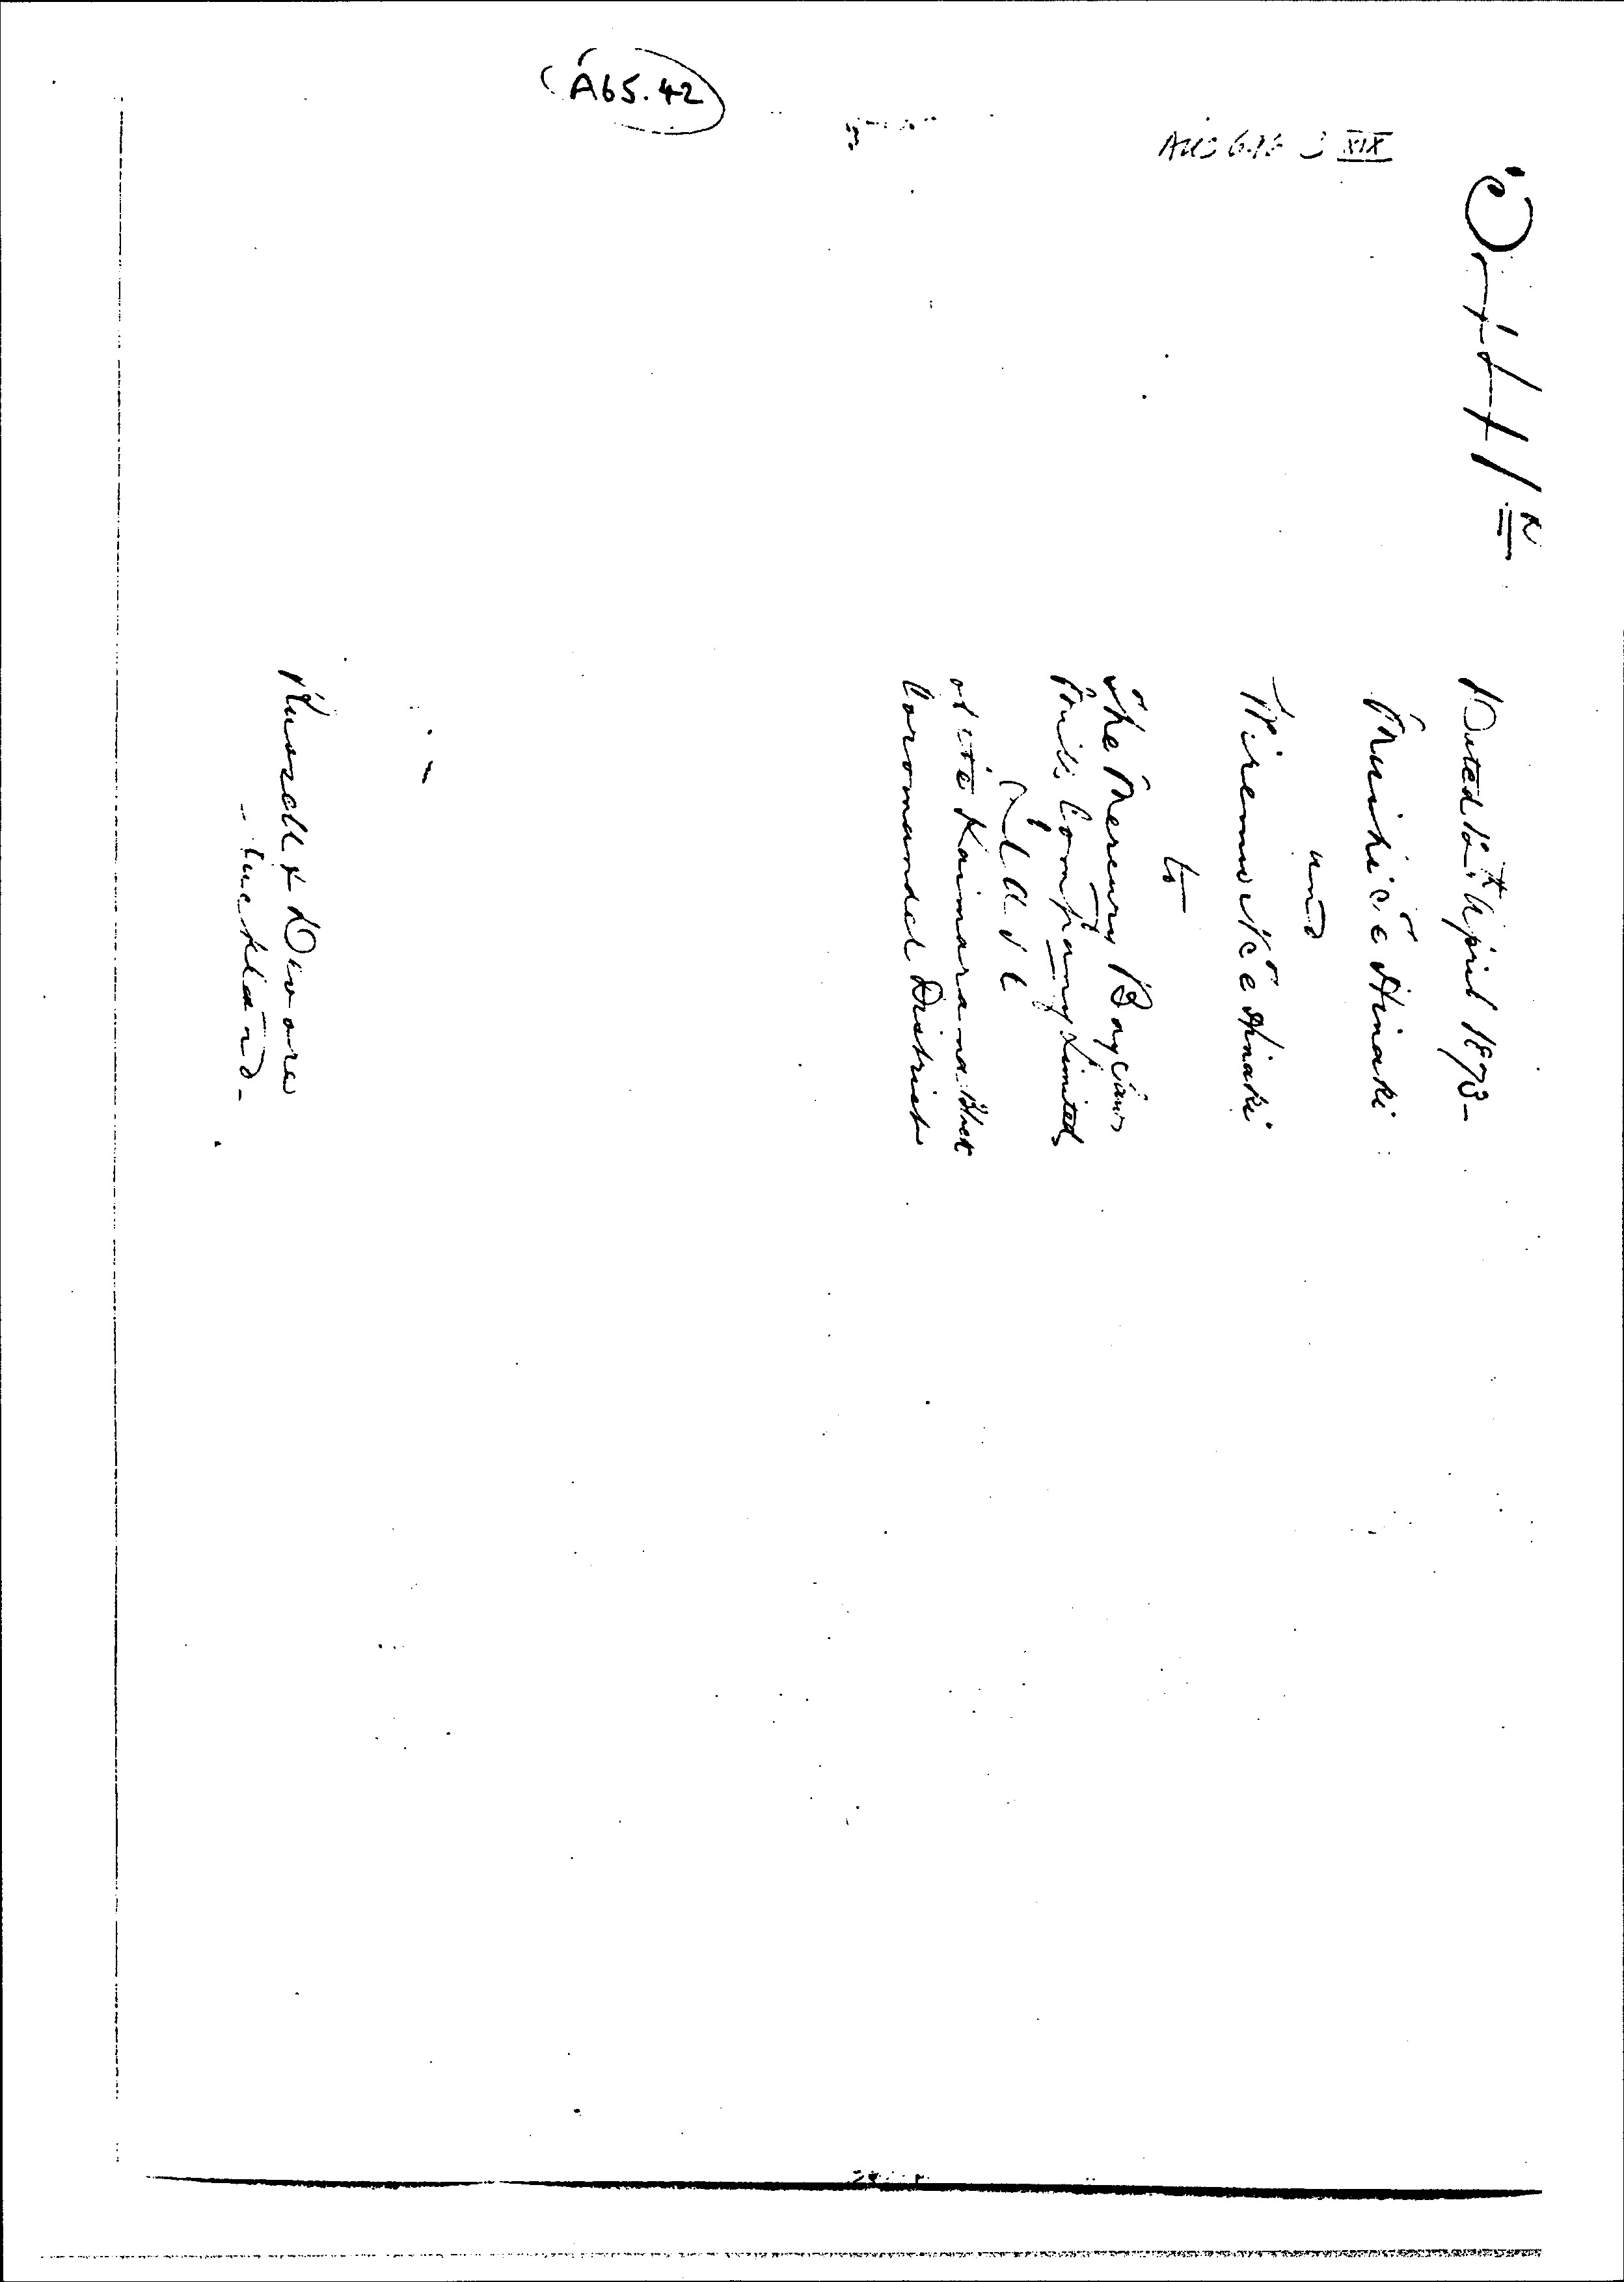 A65.42
XIX
Dated 12th April 1873-
Te Hinaki
and
Wiremu Te Hinaki
to
The Mercury Bay Saw
Mills Company Limited
Lease
of the Kaimarama Block
Coromandel District
Russell & Devore
Auckland-